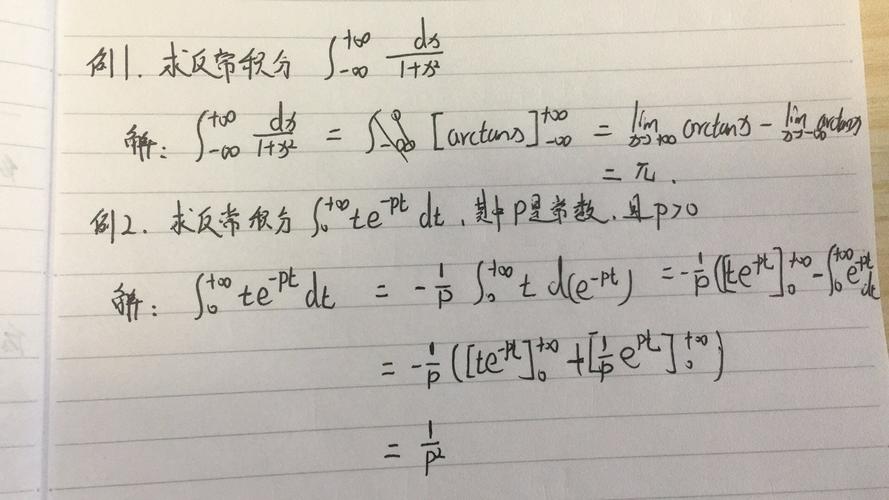 例1. 求反常积分 ∫_{-∞}^{+∞} dx/(1+x²)
解: ∫_{-∞}^{+∞} dx/(1+x²) = [arctanx]_{-∞}^{+∞} = lim_{x→+∞} arctanx - lim_{x→-∞} arctanx
= π.
例2. 求反常积分 ∫_0^{+∞} te^{-pt} dt, 其中P是常数, 且p>0
解: ∫_0^{+∞} te^{-pt} dt = -1/p ∫_0^{+∞} t d(e^{-pt}) = -1/p ([te^{-pt}]_0^{+∞} - ∫_0^{+∞} e^{-pt} dt
= -1/p ([te^{-pt}]_0^{+∞} + [1/p e^{pt}]_0^{+∞})
= 1/p²